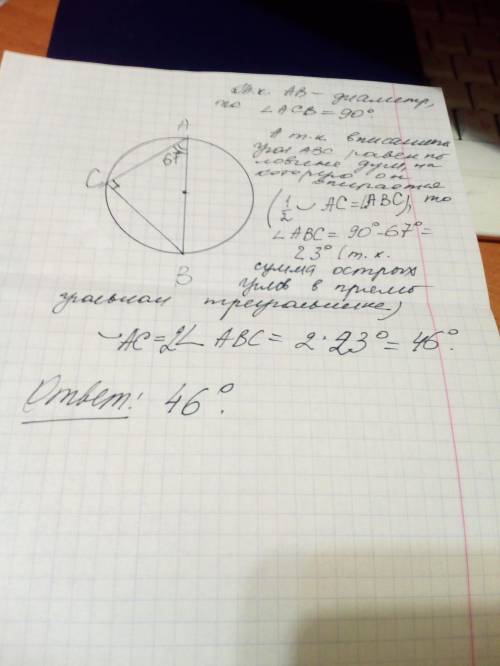 Т.к. AB – диаметр,
то ∠ACB = 90°.
А т.к. вписанный
угол ABC равен по
ловине дуги, на
которую он
опирается
(1/2 ◡ AC = ∠ABC), то
∠ABC = 90° - 67° =
23° (т.к.
сумма острых
углов в прямо
угольном треугольнике)
◡ AC = 2∠ ABC = 2 · 23° = 46°.
Ответ: 46°.
A
67
C
B